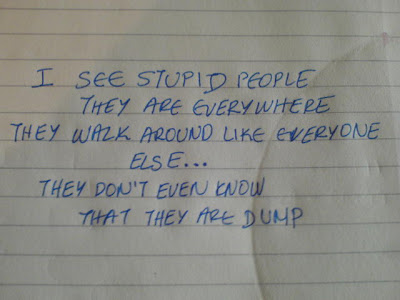 I SEE STUPID PEOPLE
THEY ARE EVERYWHERE
THEY WALK AROUND LIKE EVERYONE
ELSE...
THEY DON'T EVEN KNOW
THAT THEY ARE DUMP